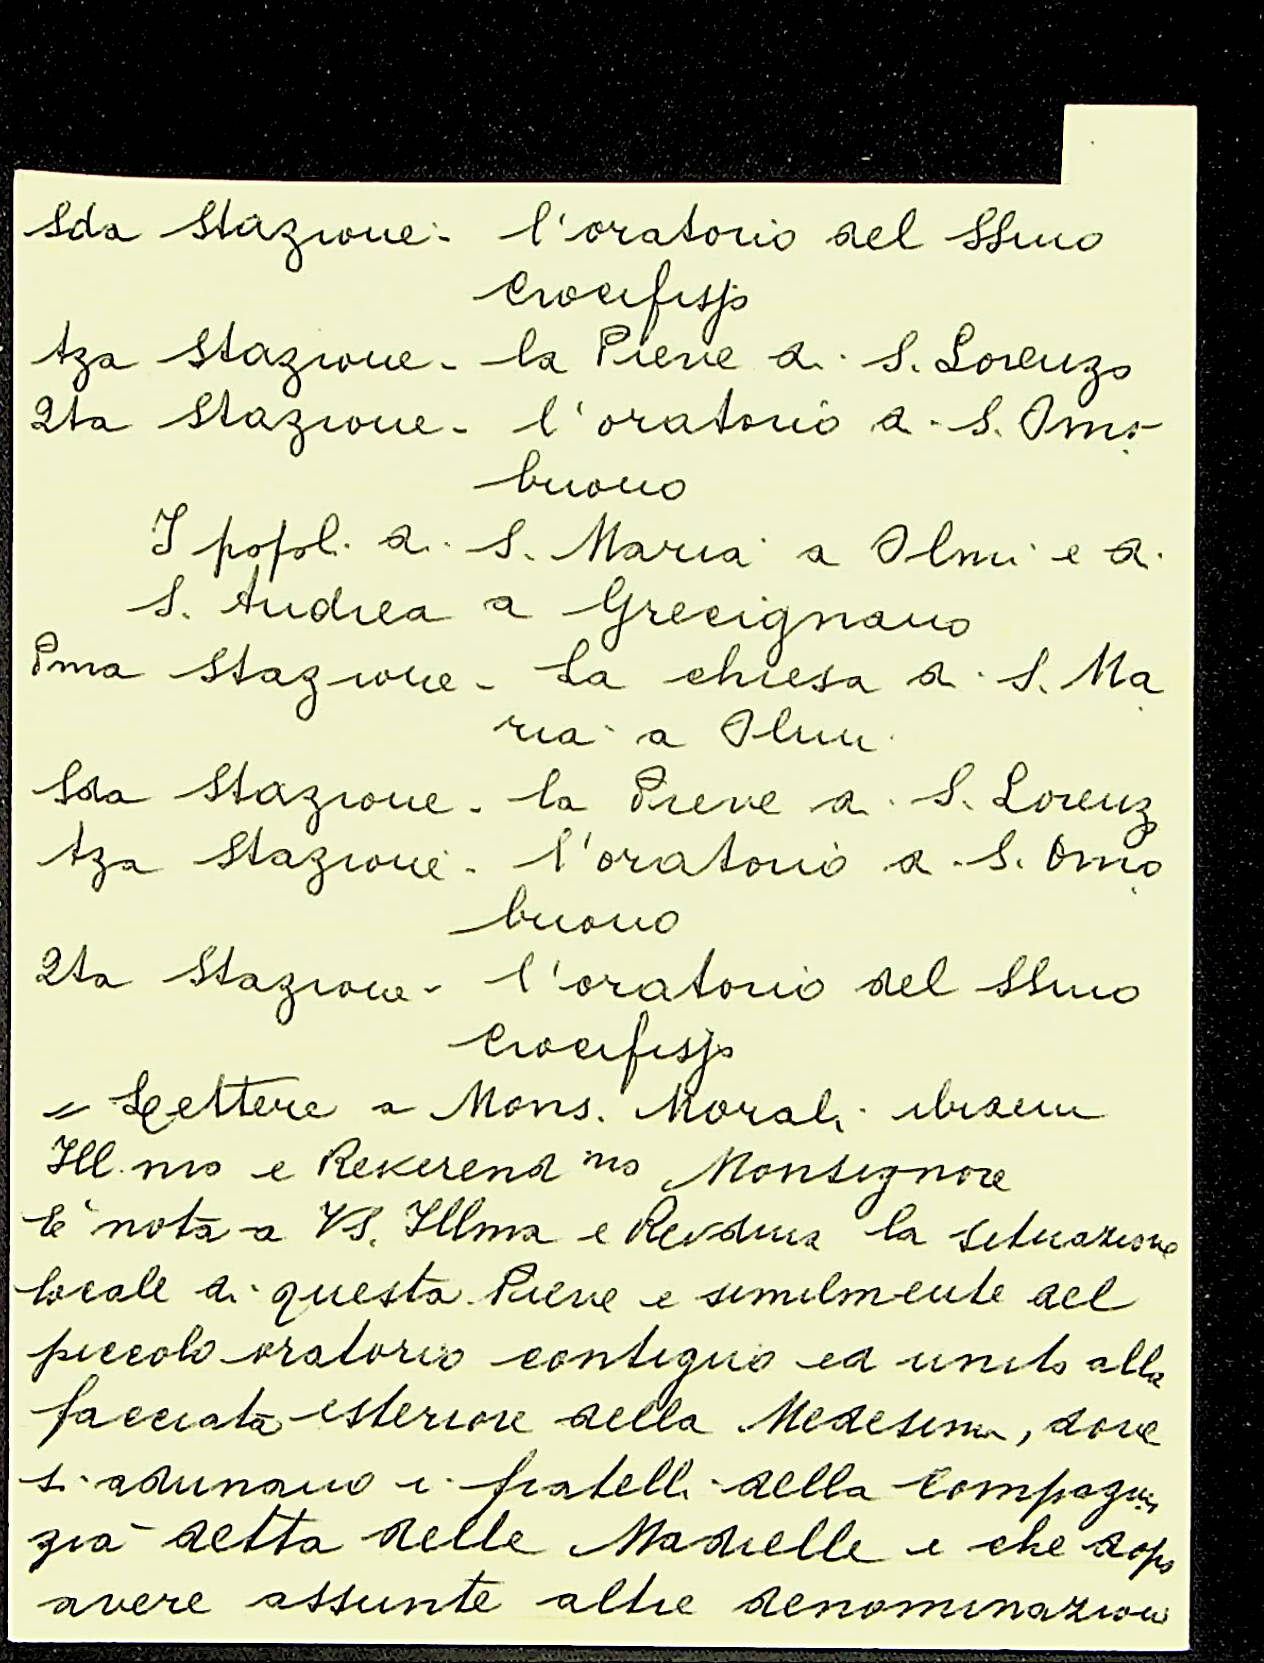 Sda Stazione - l'oratorio del SSmo
Crocifisso
tza Stazione - la Pieve di S. Lorenzo
Qta Stazione - l'oratorio di S. Omo
buono
I popoli di S. Maria a Olmi e di
S. Andrea a Grecignano
Pma Stazione - La chiesa di S. Ma
ria a Olmi
Sda Stazione - la Pieve di S. Lorenz
tza Stazione - l'oratorio di S. Omo
buono
Qta Stazione - l'oratorio del SSmo
Crocifisso
= Lettere a Mons. Morali ibidem
Ill.mo e Reverendmo Monsignore
E' nota a VS. Illma e Revdma la situazione
locale di questa Pieve e similmente del
piccolo oratorio contiguo ed unito alla
facciata esteriore della Medesima, dove
si adunano i fratelli della Compagnia
già detta delle Madrelle e che dopo
avere assunte altre denominazioni